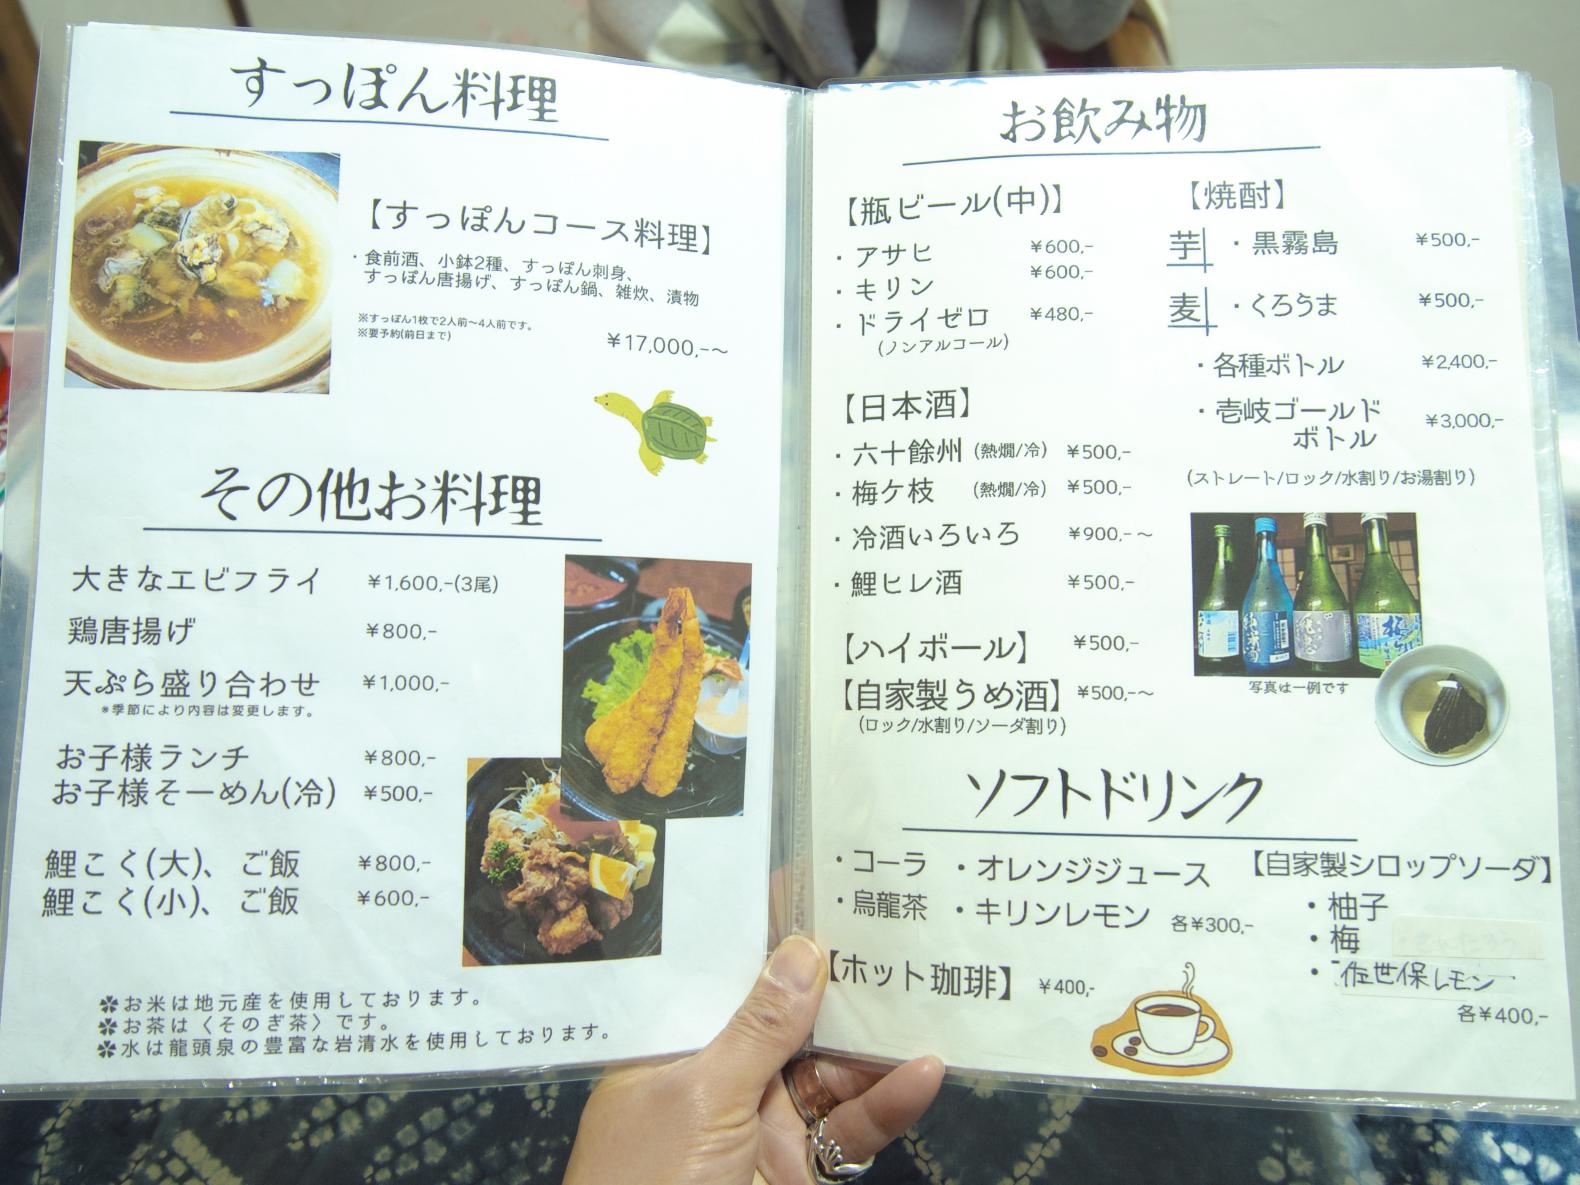 すっぽん料理
【すっぽんコース料理】
・食前酒、小鉢2種、すっぽん刺身、
すっぽん唐揚げ、すっぽん鍋、雑炊、漬物
※すっぽん1枚で2人前〜4人前です。
※要予約(前日まで)
¥17,000,-〜
その他お料理
大きなエビフライ ¥1,600,-(3尾)
鶏唐揚げ ¥800,-
天ぷら盛り合わせ ¥1,000,-
※季節により内容は変更します。
お子様ランチ ¥800,-
お子様そーめん(冷) ¥500,-
鯉こく(大)、ご飯 ¥800,-
鯉こく(小)、ご飯 ¥600,-
✽お米は地元産を使用しております。
✽お茶は〈そのぎ茶〉です。
✽水は龍頭泉の豊富な岩清水を使用しております。
お飲み物
【瓶ビール(中)】
・アサヒ ¥600,-
・キリン ¥600,-
・ドライゼロ ¥480,-
(ノンアルコール)
【日本酒】
・六十餘州 (熱燗/冷) ¥500,-
・梅ケ枝 (熱燗/冷) ¥500,-
・冷酒いろいろ ¥900,-〜
・鯉ヒレ酒 ¥500,-
【ハイボール】 ¥500,-
【自家製うめ酒】 ¥500,-〜
(ロック/水割り/ソーダ割り)
【焼酎】
芋 ・黒霧島 ¥500,-
麦 ・くろうま ¥500,-
・各種ボトル ¥2,400,-
・壱岐ゴールド
ボトル ¥3,000,-
(ストレート/ロック/水割り/お湯割り)
写真は一例です
ソフトドリンク
・コーラ ・オレンジジュース
・烏龍茶 ・キリンレモン 各¥300,-
【ホット珈琲】 ¥400,-
【自家製シロップソーダ】
・柚子
・梅
・佐世保レモン
各¥400,-